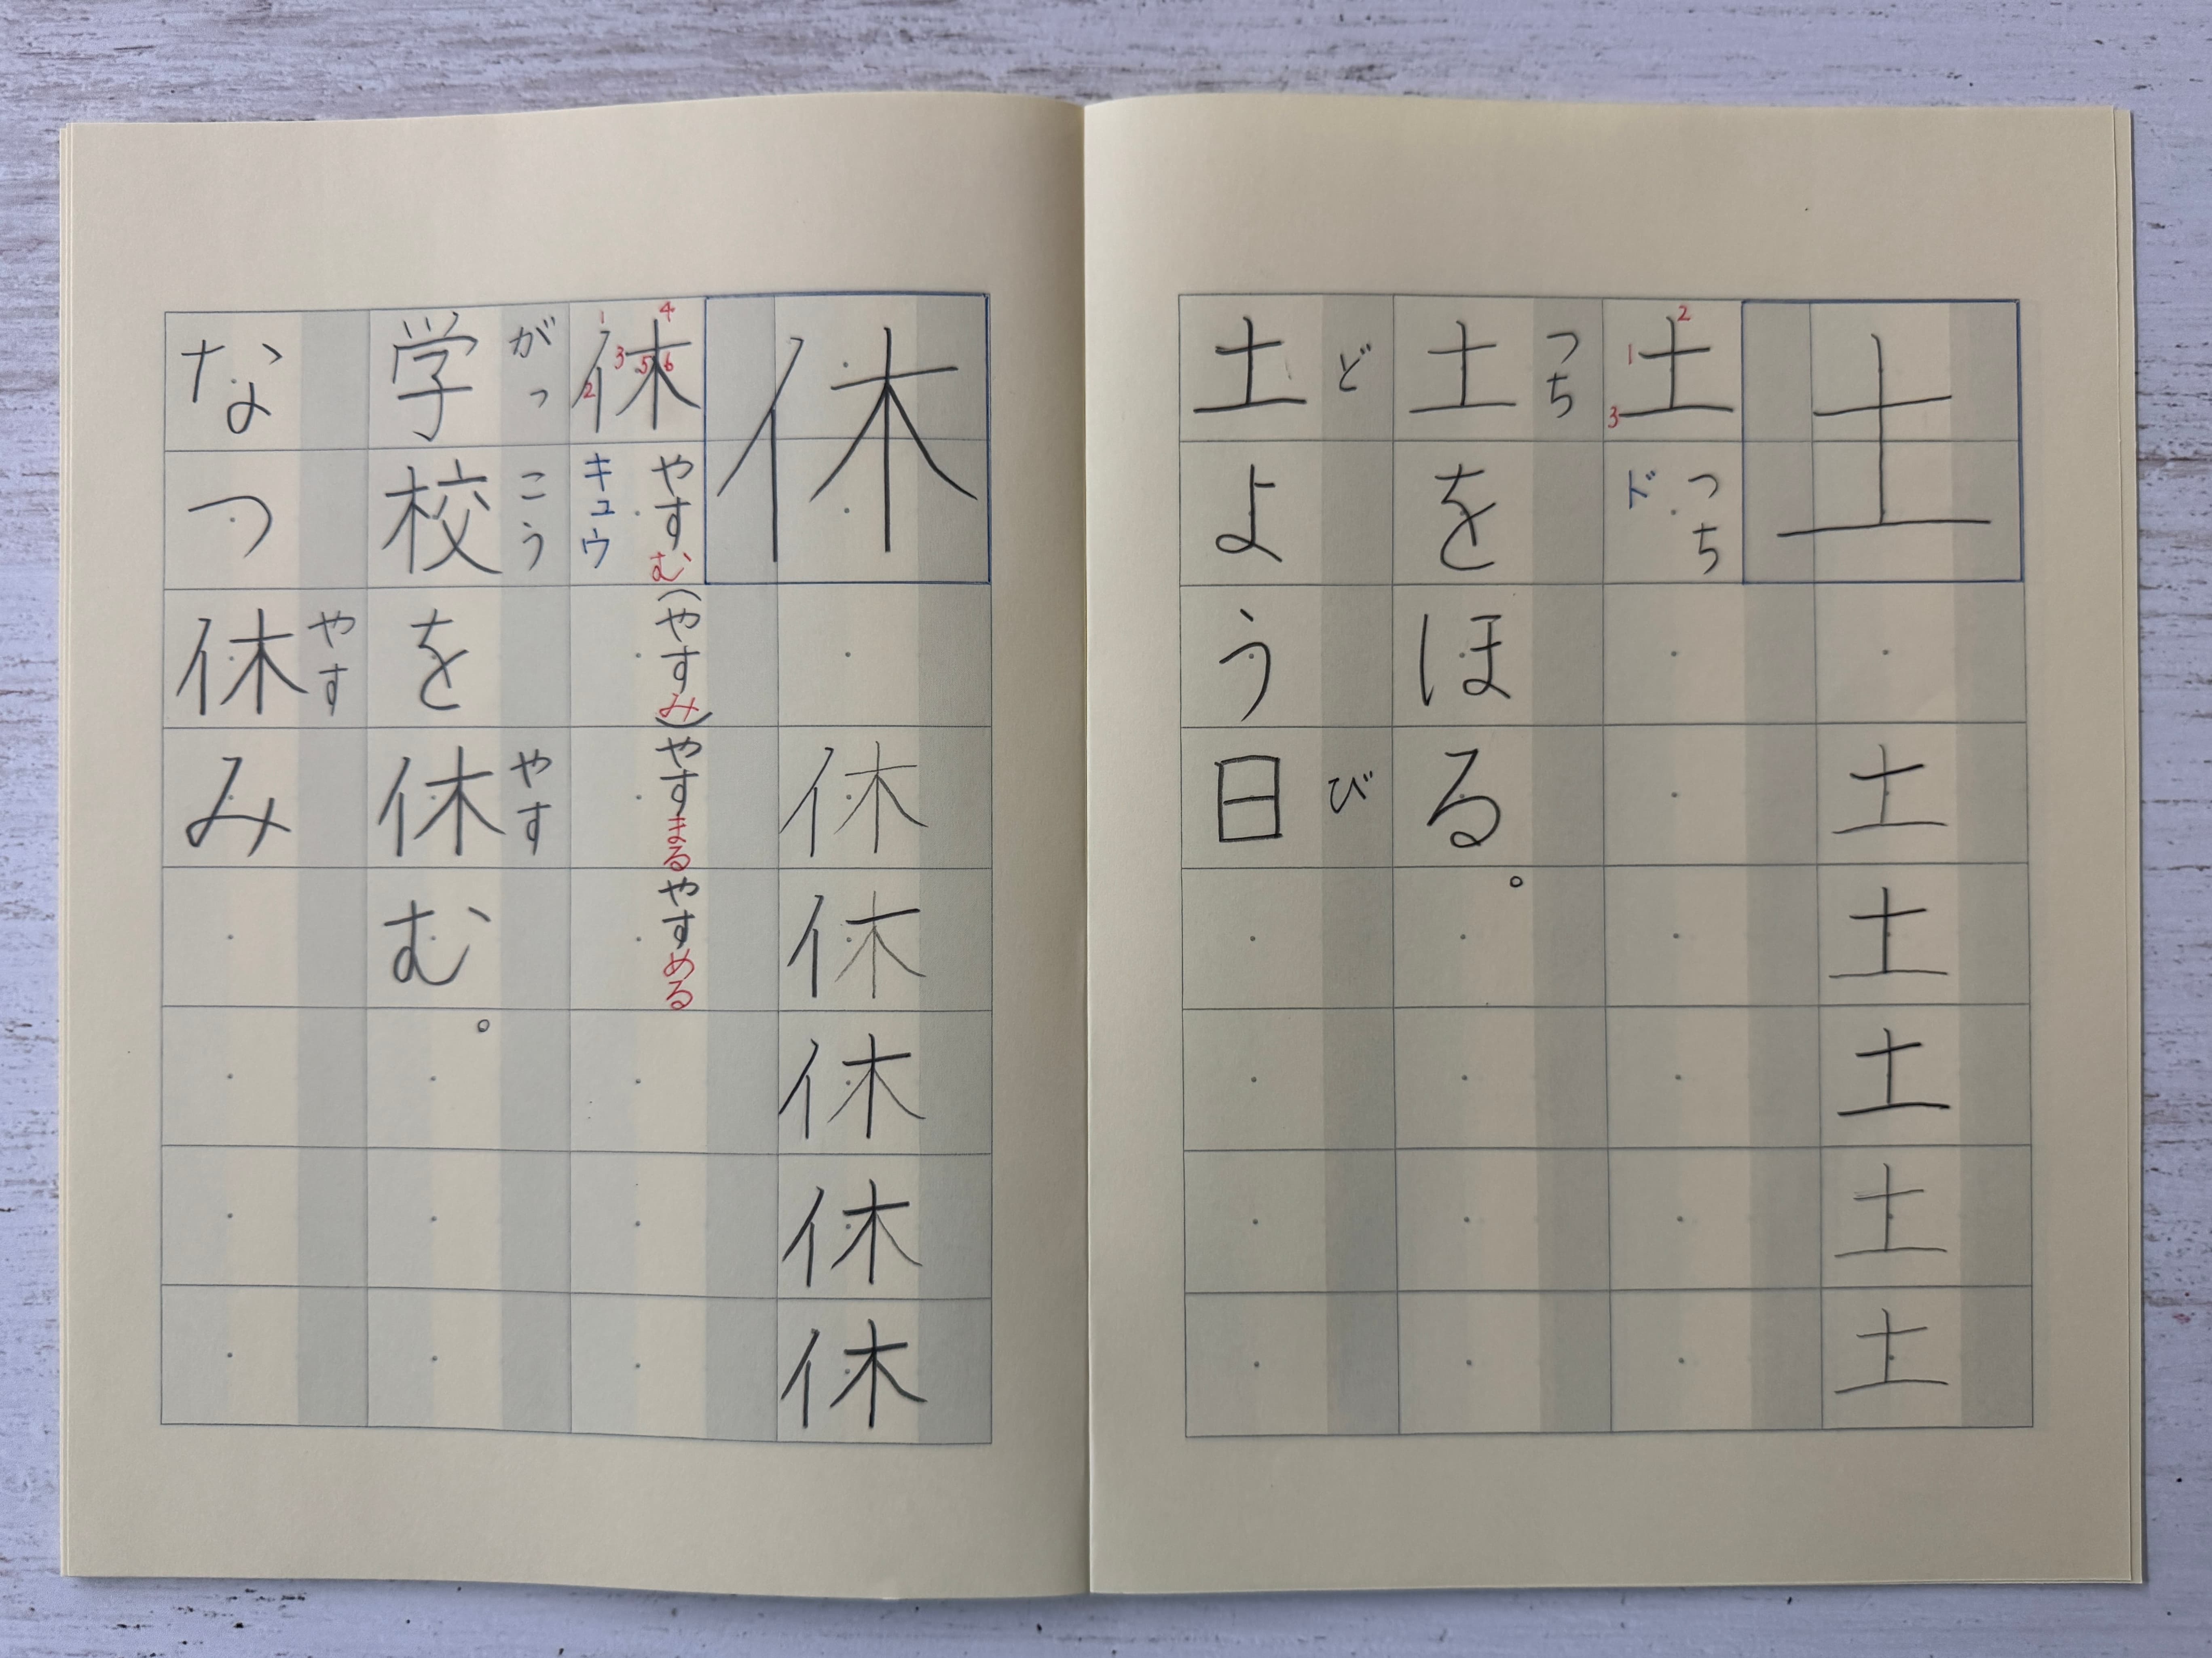 土
土
土
土
土
土
1 2 3 土
つち
ド
つち
土をほる。
ど び
土よう日
休
休
休
休
休
休
1 2 3 4 5 6 休
やすむ(やすみ)やすまるやすめる
キュウ
がっこう やす
学校を休む。
やす
なつ休み